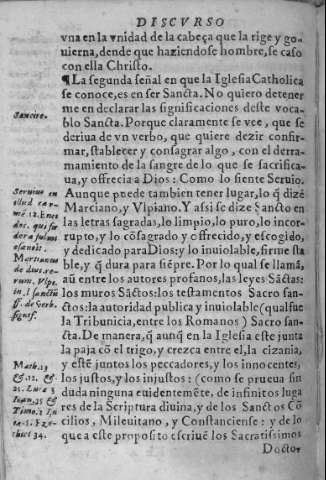 DISCVRSO
vna en la vnidad de la cabeça que la rige y go-
uierna, dende que haziendose hombre, se caso
con ella Christo.
¶ La segunda señal en que la Iglesia Catholica
se conoce, es en ser Sancta. No quiero detener
me en declarar las significaciones deste voca-
blo Sancta. Porque claramente se vee, que se
deriua de vn verbo, que quiere dezir confir-
mar, stablecer y consagrar algo, con el derra-
mamiento de la sangre de lo que se sacrifica-
ua, y offrecia a Dios: Como lo siente Seruio.
Aunque puede tambien tener lugar, lo q̃ dizẽ
Marciano, y Vlpiano. Y assi se dize Sancto en
las letras sagradas, lo limpio, lo puro, lo incor-
rupto, y lo cõsagrado y offrecido, y escogido,
y dedicado para Dios: y lo inuiolable, firme sta
ble, y q̃ dura para siẽpre. Por lo qual se llamã,
aũ entre los autores profanos, las leyes Sãctas:
los muros Sãctos: los testamentos Sacro san-
ctos: la autoridad publica y inuiolable (qual fue
la Tribunicia, entre los Romanos) Sacro san-
cta. De manera, q̃ aunq̃ en la Iglesia este junta
la paja cõ el trigo, y crezca entre el, la cizania,
y estẽ juntos los peccadores, y los innocentes,
los justos, y los injustos: (como se prueua sin
duda ninguna euidentemẽte, de infinitos luga
res de la Scriptura diuina, y de los Sanctos Cõ
cilios, Mileuitano, y Constanciense: y de lo
que a este proposito escriuẽ los Sacratissimos
Doctor
Sancire.
Seruius in
illud car-
mẽ 12. Enei
dos. qui fœ
dera fulmi
Martianus
Math. 13
Ioan.
Timo.
chiel 34.